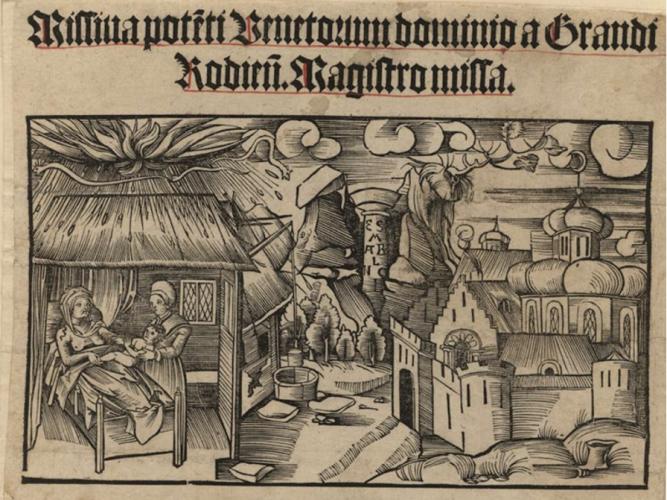 Missiua potēti Venetorum dominio a Grandi
Rodieñ. Magistro missa.